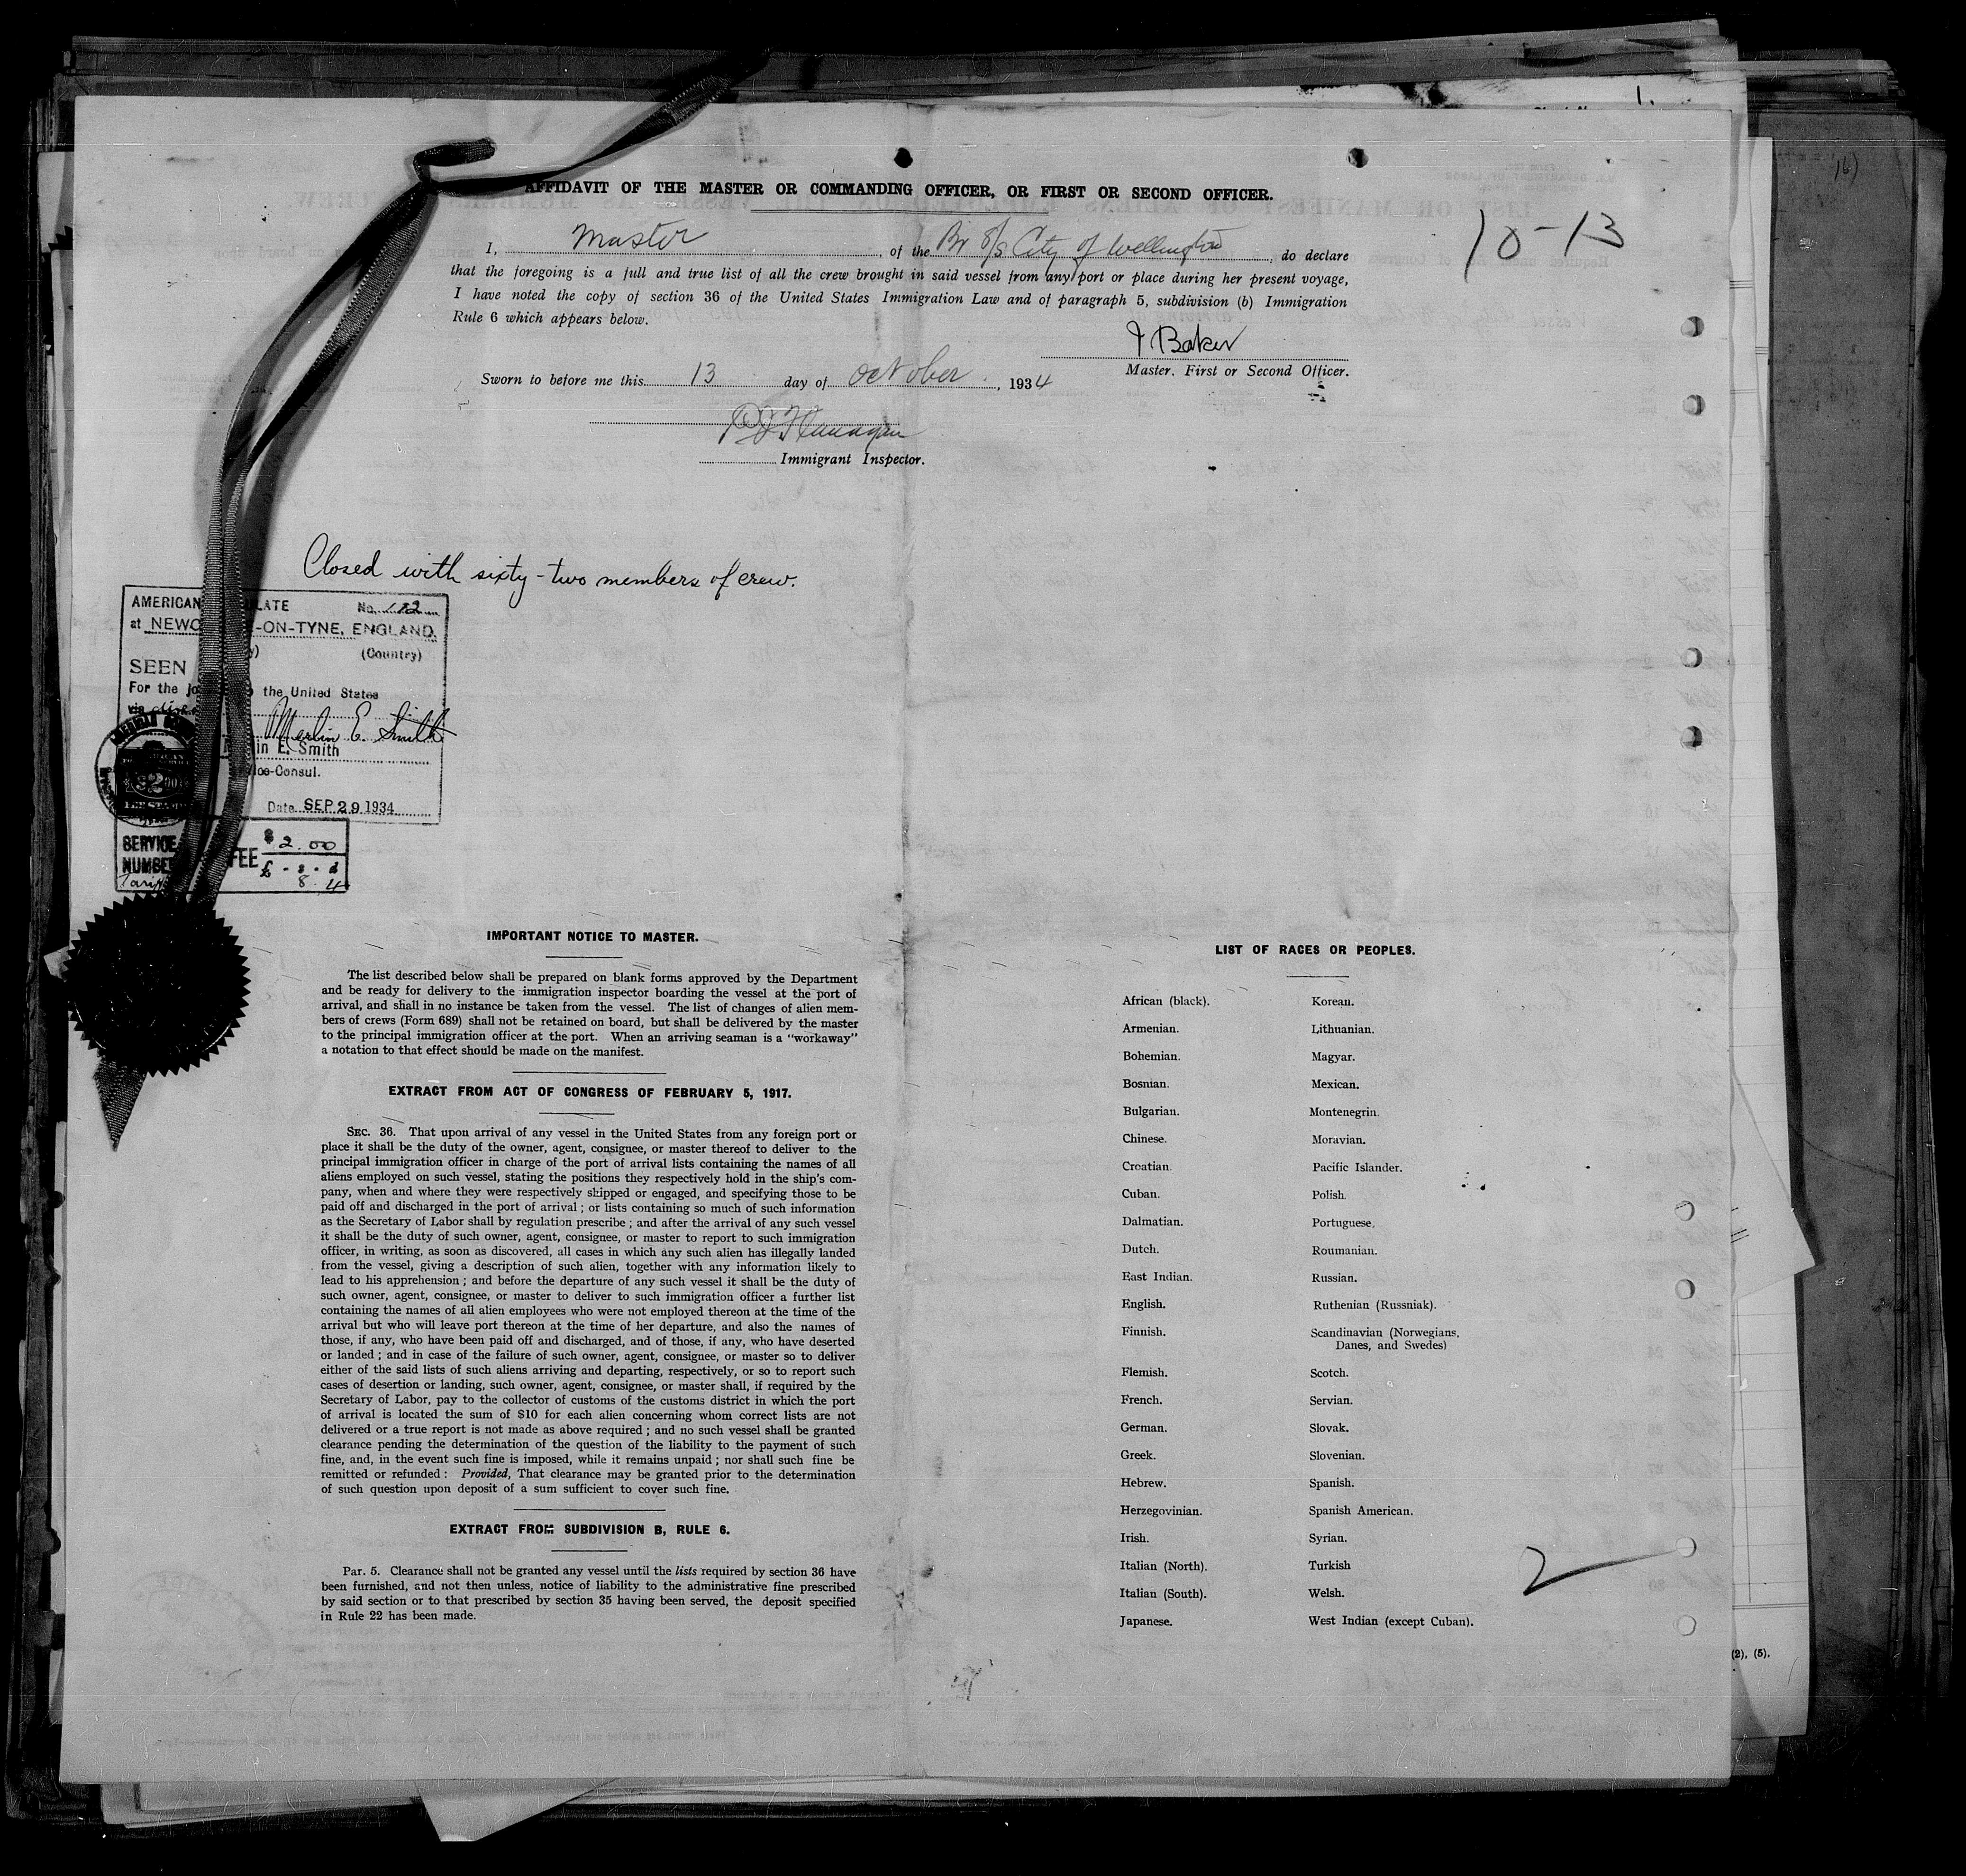 1.
AFFIDAVIT OF THE MASTER OR COMMANDING OFFICER, OR FIRST OR SECOND OFFICER.
10-13
I, Master, of the Br S/S City of Wellington, do declare
that the foregoing is a full and true list of all the crew brought in said vessel from any port or place during her present voyage,
I have noted the copy of section 36 of the United States Immigration Law and of paragraph 5, subdivision (b) Immigration
Rule 6 which appears below.
Baker
Master, First or Second Officer.
Sworn to before me this 13 day of October, 1934
Immigrant Inspector.
Closed with sixty-two members of crew.
AMERICAN LATE No. 132
at NEWC -ON-TYNE, ENGLAND.
(Country)
SEEN
For the jo the United States
via
Merlin E. Smith
in E. Smith
ice-Consul.
Date SEP 29 1934
SERVICE
NUMBE
Tariff
FEE $2.00
£ - s - d
8. 4
IMPORTANT NOTICE TO MASTER.
The list described below shall be prepared on blank forms approved by the Department
and be ready for delivery to the immigration inspector boarding the vessel at the port of
arrival, and shall in no instance be taken from the vessel. The list of changes of alien mem-
bers of crews (Form 689) shall not be retained on board, but shall be delivered by the master
to the principal immigration officer at the port. When an arriving seaman is a "workaway"
a notation to that effect should be made on the manifest.
EXTRACT FROM ACT OF CONGRESS OF FEBRUARY 5, 1917.
SEC. 36. That upon arrival of any vessel in the United States from any foreign port or
place it shall be the duty of the owner, agent, consignee, or master thereof to deliver to the
principal immigration officer in charge of the port of arrival lists containing the names of all
aliens employed on such vessel, stating the positions they respectively hold in the ship's com-
pany, when and where they were respectively shipped or engaged, and specifying those to be
paid off and discharged in the port of arrival; or lists containing so much of such information
as the Secretary of Labor shall by regulation prescribe; and after the arrival of any such vessel
it shall be the duty of such owner, agent, consignee, or master to report to such immigration
officer, in writing, as soon as discovered, all cases in which any such alien has illegally landed
from the vessel, giving a description of such alien, together with any information likely to
lead to his apprehension; and before the departure of any such vessel it shall be the duty of
such owner, agent, consignee, or master to deliver to such immigration officer a further list
containing the names of all alien employees who were not employed thereon at the time of the
arrival but who will leave port thereon at the time of her departure, and also the names of
those, if any, who have been paid off and discharged, and of those, if any, who have deserted
or landed; and in case of the failure of such owner, agent, consignee, or master so to deliver
either of the said lists of such aliens arriving and departing, respectively, or so to report such
cases of desertion or landing, such owner, agent, consignee, or master shall, if required by the
Secretary of Labor, pay to the collector of customs of the customs district in which the port
of arrival is located the sum of $10 for each alien concerning whom correct lists are not
delivered or a true report is not made as above required; and no such vessel shall be granted
clearance pending the determination of the question of the liability to the payment of such
fine, and, in the event such fine is imposed, while it remains unpaid; nor shall such fine be
remitted or refunded: Provided, That clearance may be granted prior to the determination
of such question upon deposit of a sum sufficient to cover such fine.
EXTRACT FROM SUBDIVISION B, RULE 6.
Par. 5. Clearance shall not be granted any vessel until the lists required by section 36 have
been furnished, and not then unless, notice of liability to the administrative fine prescribed
by said section or to that prescribed by section 35 having been served, the deposit specified
in Rule 22 has been made.
LIST OF RACES OR PEOPLES.
African (black).
Armenian.
Bohemian.
Bosnian.
Bulgarian.
Chinese.
Croatian.
Cuban.
Dalmatian.
Dutch.
East Indian.
English.
Finnish.
Flemish.
French.
German.
Greek.
Hebrew.
Herzegovinian.
Irish.
Italian (North).
Italian (South).
Japanese.
Korean.
Lithuanian.
Magyar.
Mexican.
Montenegrin.
Moravian.
Pacific Islander.
Polish.
Portuguese.
Roumanian.
Russian.
Ruthenian (Russniak).
Scandinavian (Norwegians,
Danes, and Swedes)
Scotch.
Servian.
Slovak.
Slovenian.
Spanish.
Spanish American.
Syrian.
Turkish
Welsh.
West Indian (except Cuban).
2
(2), (5).